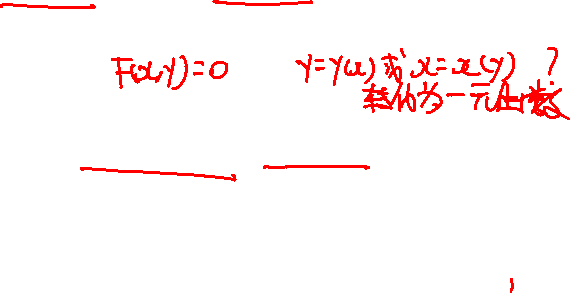 F(x,y)=0 y=y(x)或x=x(y) ?
转化为一元函数